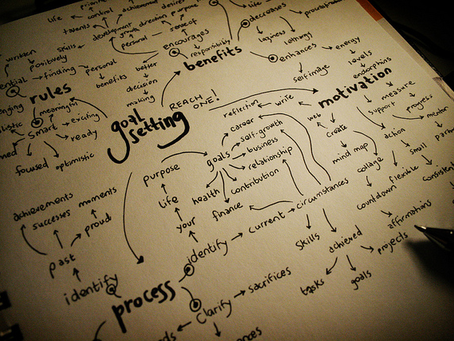 life
priorities
talents
growth
direction
purpose
development
respect
personal
written
skills
positively
finding
personal
benefits
better
decision
making
encourages
responsibility
benefits
decreases
laziness
enhances
energy
levels
endorphins
self image
rules
meaningful
exciting
smart
ready
focused
optimistic
goal
setting
REACH
ONE!
motivation
measure
progress
support
action
small
write
create
mind map
collage
flexible
countdown
affirmations
projects
career
self-growth
goals
business
relationship
contribution
health
finance
purpose
life
your
identify
current
circumstances
skills
achieved
tasks
goals
achievements
successes
moments
proud
past
identify
process
clarify
sacrifices